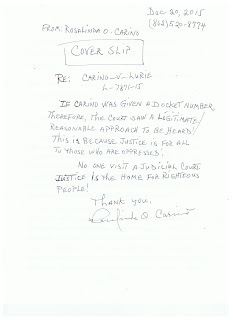 Dec 20, 2015
(862) 520-8994
FROM: ROSALINDA O. CARINO
COVER SLIP
RE: CARINO -V- LURIE
L-7871-15
IF CARINO WAS GIVEN A DOCKET NUMBER
THEREFORE, THE COURT SAW A LEGITIMATE/
REASONABLE APPROACH TO BE HEARD!
THIS IS BECAUSE JUSTICE IS FOR ALL
TO THOSE WHO ARE OPPRESSED!
NO ONE VISIT A JUDICIAL COURT.
JUSTICE IS THE HOME FOR RIGHTEOUS
PEOPLE!
THANK YOU,
O. Carino